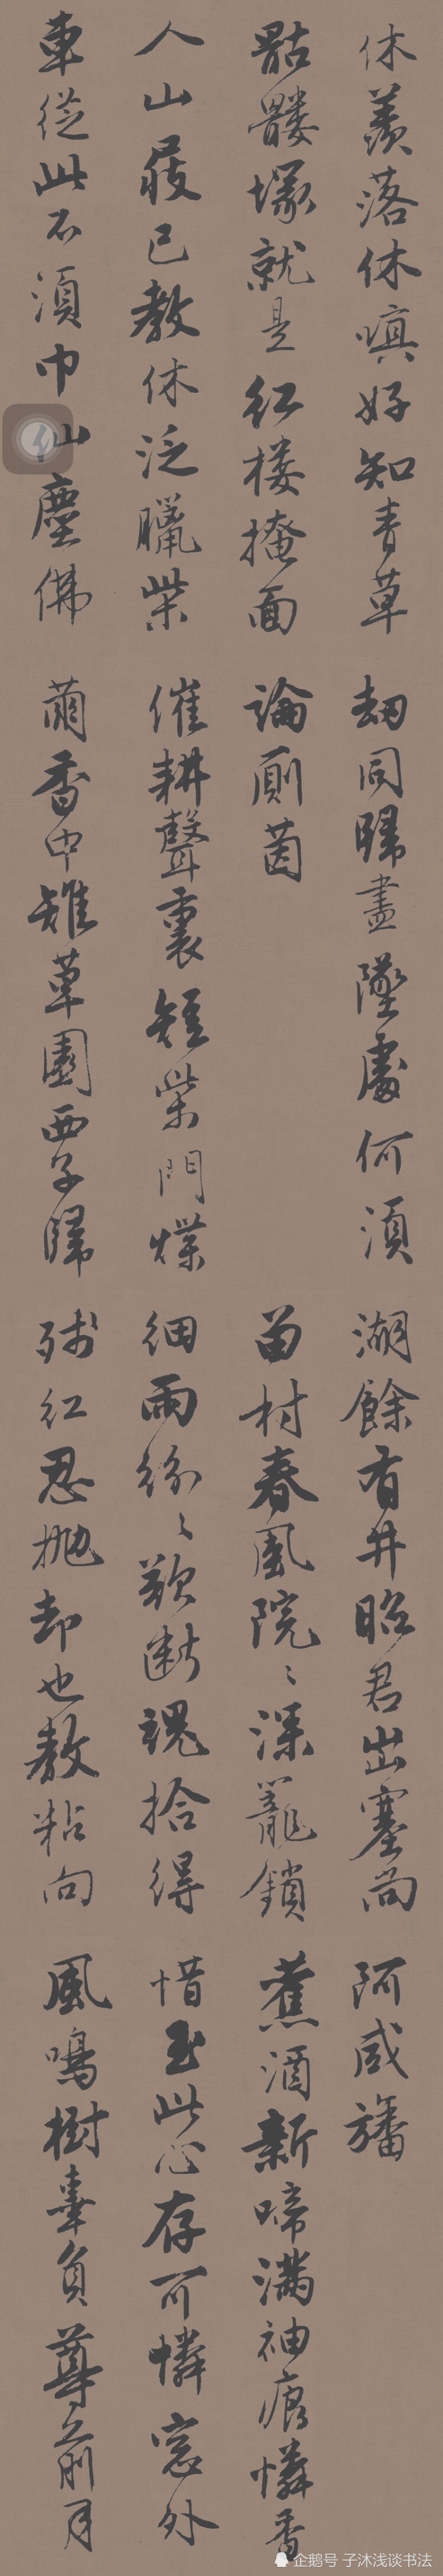 休羨落休嗔好知青草
骷髏塚就是紅樓掩面
人山屐已教休泛臘柴
車從此不須巾仙塵佛
劫同歸盡墜處何須
論廁茵
催耕聲裏短柴門煠
繭香中雉草園西子歸
湖餘有井昭君出塞尚
留村春風院〻深籠鎖
細雨紛〻欲斷魂拾得
殘紅忍拋却也教粘向
阿咸旛
蕉酒新啼滿袖痕憐香
惜玉此心存可憐窓外
風鳴樹辜負尊前月
企鹅号 子沐浅谈书法